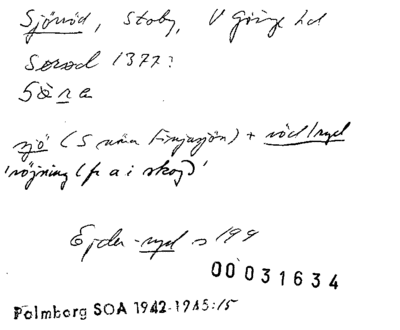 Sjöröd, Stoby, V Göinge hd
Serod 1377?
Söra
sjö (S nära Finjasjön) + röd/ryd
'röjning (fr a i skog)'
Ejder-ryd s 199
00031634
Palmborg SOA 1942-1945:15